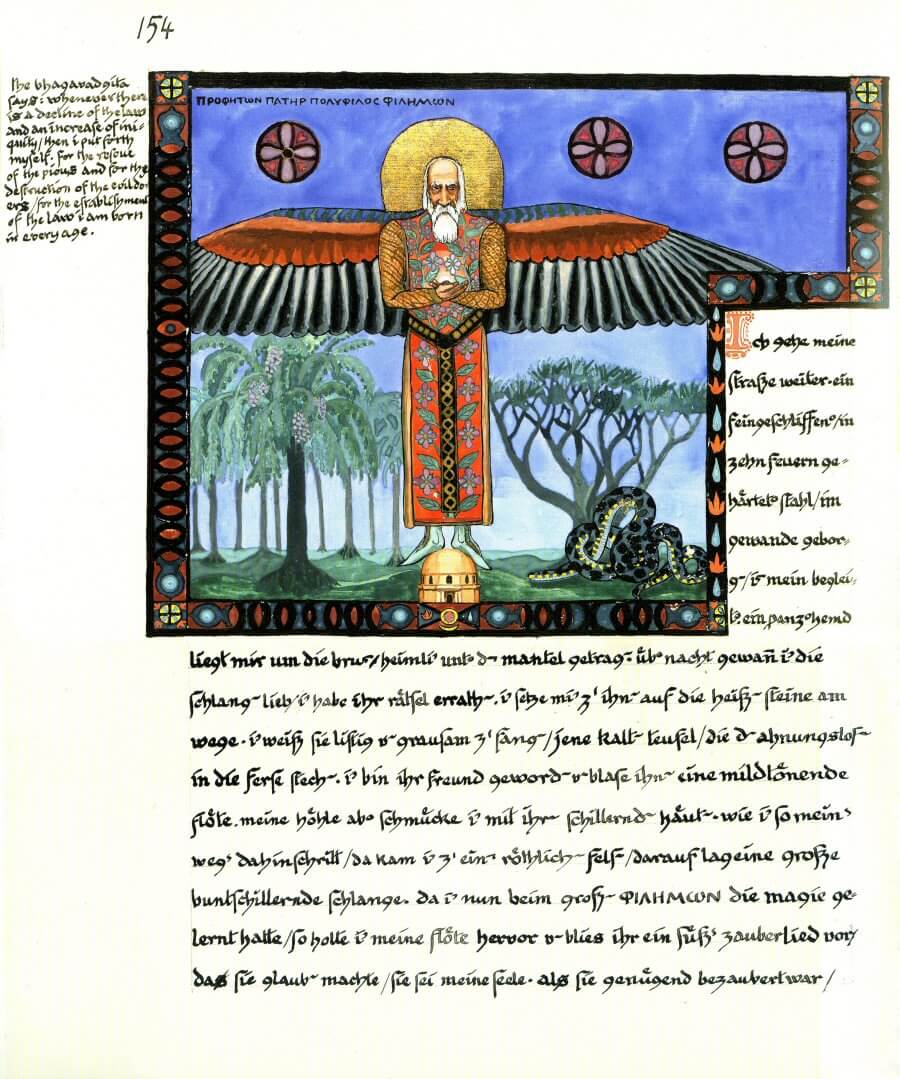 154
the bhagavadgita
says: whenever there
is a decline of the law
and an increase of ini-
quity/then i put forth
myself. for the rescue
of the pious and for the
destruction of the evildo-
ers/for the establishment
of the law i am born
in every age.
ΠΡΟΦΗΤΩΝ ΠΑΤΗΡ ΠΟΛΥΦΙΛΟΣ ΦΙΛΗΜΩΝ
Ich gehe meine
straße weiter. ein
feingeschliffen/in
zehn feuern ge-
härtet stahl/im
gewande gebor-
g/i mein beglei-
t. ein panzhemd
liegt mir um die brus/heimli unt d mantel getrag. üb nacht gewañ i die
schlang lieb/i habe ihr räthsel errath. i setze mi z' ihn auf die heiß steine am
wege. i weiß sie listig u grausam z' fang/jene kalt teufel/die d ahnungslos
in die ferse stech. i bin ihr freund geword u blase ihn eine mildtönende
flöte. meine höhle ab schmücke i mit ihr schillernd häut. wie i so mein
weg dahinschritt/da kam i z' ein röthlich fels/darauf lag eine große
buntschillernde schlange. da i nun beim groß ΦΙΛΗΜΩΝ die magie ge-
lernt hatte/so holte i meine flöte hervor u blies ihr ein süß zauberlied vor/
das sie glaub machte/sie sei meine seele. als sie genügend bezaubert war/